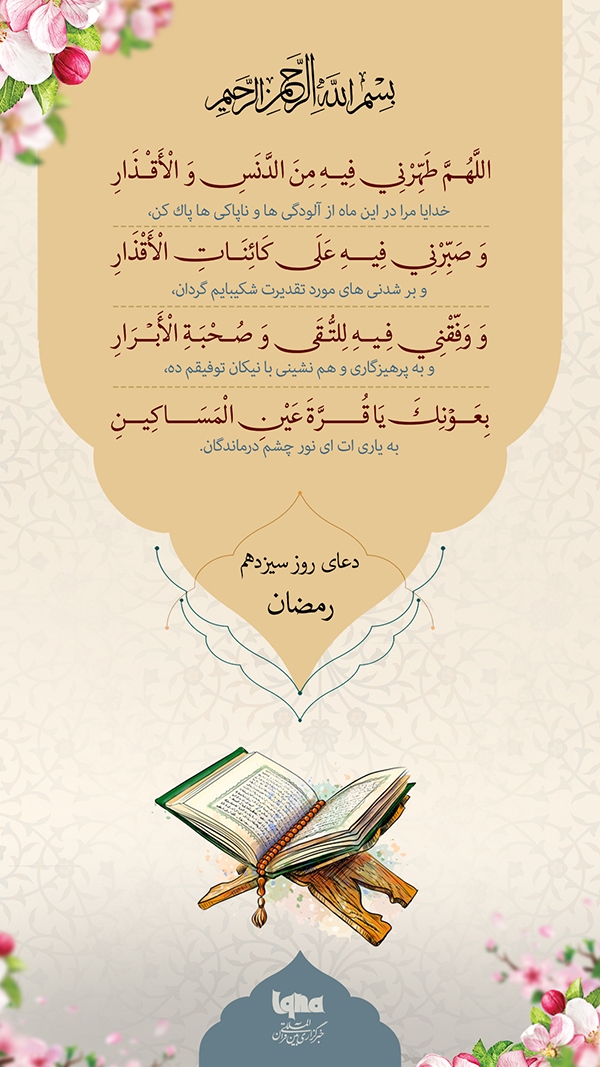 بِسْمِ اللَّهِ الرَّحْمَنِ الرَّحِيمِ
اللَّهُمَّ طَهِّرْنِي فِيهِ مِنَ الدَّنَسِ وَ الْأَقْذَارِ
خدایا مرا در این ماه از آلودگی ها و ناپاکی ها پاک کن،
وَ صَبِّرْنِي فِيهِ عَلَى كَائِنَاتِ الْأَقْذَارِ
و بر شدنی های مورد تقدیرت شکیبایم گردان،
وَ وَفِّقْنِي فِيهِ لِلتُّقَى وَ صُحْبَةِ الْأَبْرَارِ
و به پرهیزگاری و هم نشینی با نیکان توفیقم ده،
بِعَوْنِكَ يَا قُرَّةَ عَيْنِ الْمَسَاكِينِ
به یاری ات ای نور چشم درماندگان.
دعای روز سیزدهم
رمضان
Iqna
خبرگزاری بین المللی قرآن